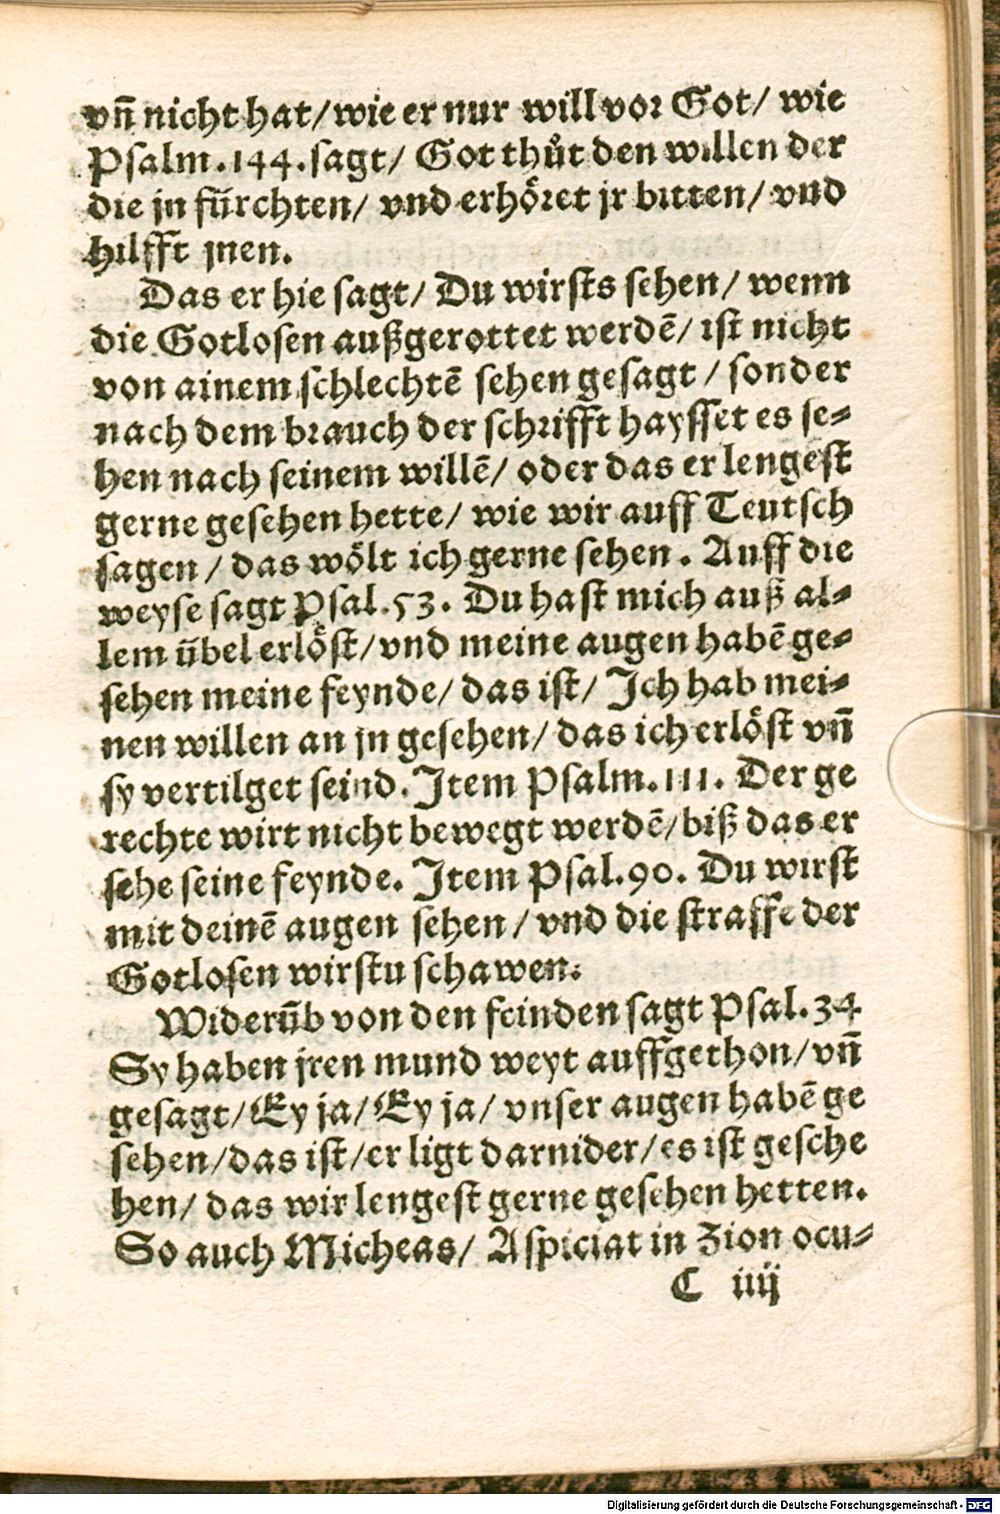 vn̄ nicht hat/ wie er nur will vor Got/ wie
Psalm. 144. sagt/ Got thůt den willen der
die jn fürchten/ vnd erhöret jr bitten/ vnd
hilfft jnen.
Das er hie sagt/ Du wirsts sehen/ wenn
die Gotlosen außgerottet werdē/ ist nicht
von ainem schlechtē sehen gesagt/ sonder
nach dem brauch der schrifft haysset es se-
hen nach seinem willē/ oder das er lengest
gerne gesehen hette/ wie wir auff Teutsch
sagen/ das wölt ich gerne sehen. Auff die
weyse sagt Psal. 53. Du hast mich auß al-
lem übel erlöst/ vnd meine augen habē ge-
sehen meine feynde/ das ist/ Ich hab mei-
nen willen an jn gesehen/ das ich erlöst vn̄
sy vertilget seind. Item Psalm. 111. Der ge
rechte wirt nicht bewegt werdē/ biß das er
sehe seine feynde. Item Psal. 90. Du wirst
mit deinē augen sehen/ vnd die straffe der
Gotlosen wirstu schawen.
Widerūb von den feinden sagt Psal. 34
Sy haben jren mund weyt auffgethon/ vn̄
gesagt/ Ey ja/ Ey ja/ vnser augen habē ge
sehen/ das ist/ er ligt darnider/ es ist gesche
hen/ das wir lengest gerne gesehen hetten.
So auch Micheas/ Aspiciat in Zion ocu-
C iiij
Digitalisierung gefördert durch die Deutsche Forschungsgemeinschaft - DFG